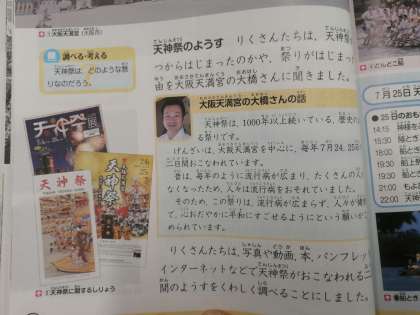 1 大阪天満宮（大阪市）
調べる・考える
天神祭は、どのような祭
りなのだろう。
天神祭
天神祭
2 天神祭に関するしりょう
天神祭のようす
りくさんたちは、天神祭
つからはじまったのかや、祭りがはじまっ
由を大阪天満宮の大橋さんに聞きました。
大阪天満宮の大橋さんの話
天神祭は、1000年以上続いている、歴史の
る祭りです。
げんざいは、大阪天満宮を中心に、毎年7月24、25の
二日間おこなわれています。
昔は、毎年のように流行病が広まり、たくさんの人
なくなったため、人々は流行病をおそれていました。
そのため、この祭りは、流行病が広まらず、人々が健
で、心おだやかに平和にすごせるようにという願いが
められています。
りくさんたちは、写真や動画、本、パンフレッ
インターネットなどで天神祭がおこなわれる二
間のようすをくわしく調べることにしました。
7月25日 天
25日のおも
14:15
15:30
18:00
19:30
21:00
22:00